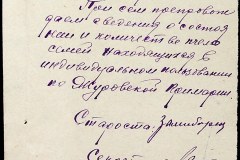 При сем препровож
даем сведения о состоя
нии и количестве пчело
семей находящихся в
индивидуальном пользовании
по Журовской Коммарии
Староста
Секр